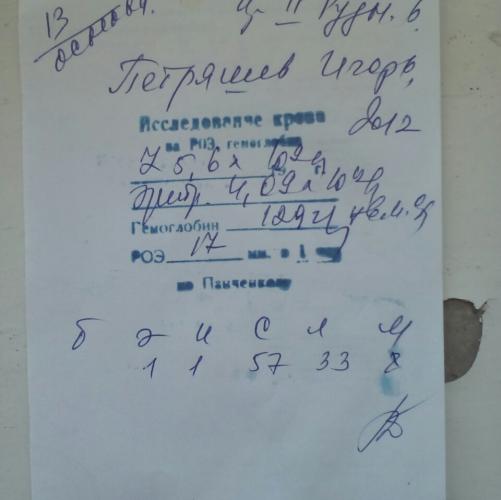 13
Петряшев Игорь,
2012
Исследование крови
на РОЭ, гемоглобин
L 5,6 x 10⁹/л
Эритр. 4,09 x 10¹²/л
Гемоглобин 129 г/л
РОЭ 17 мм. в 1 час
по Панченкову
б э п с л м
1 1 57 33 8